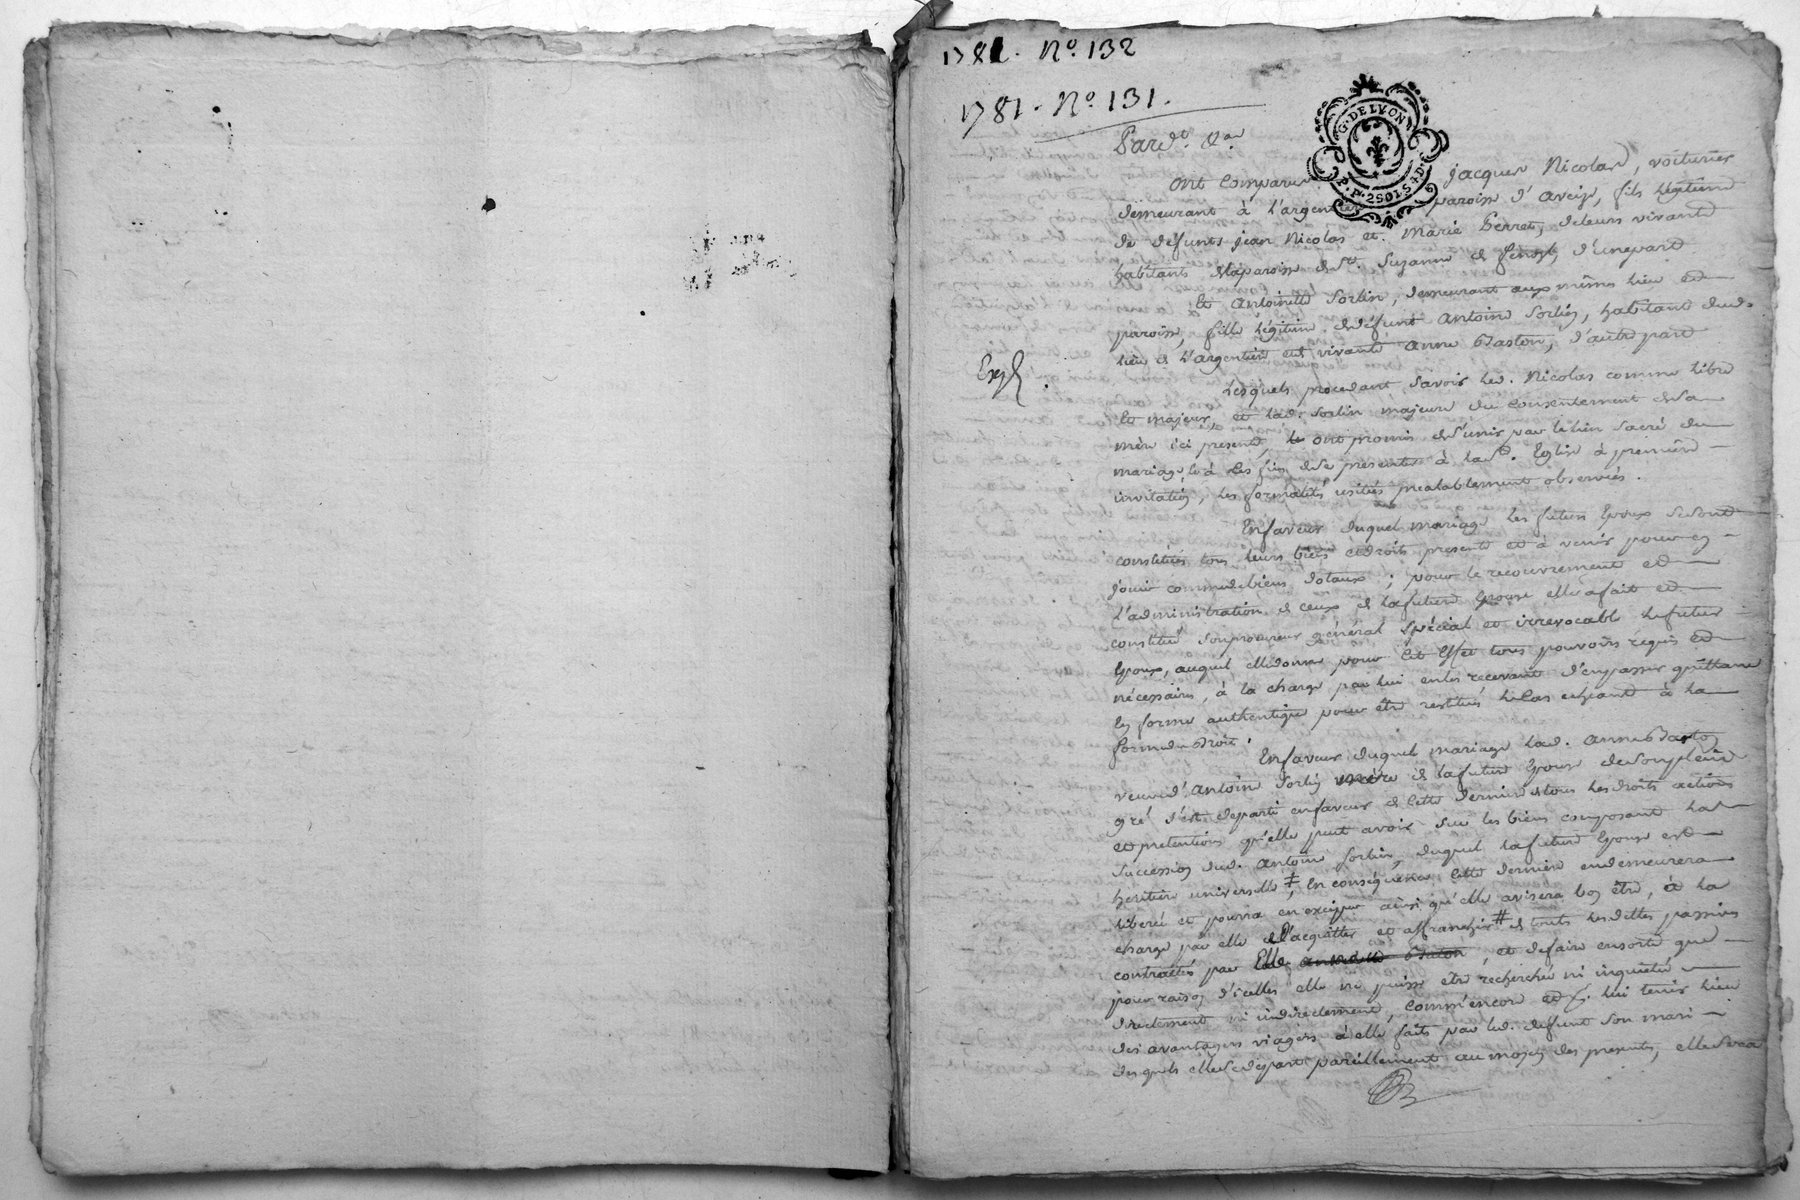 1781. N.º 132
1781. N.º 131.
G. DE LYON
P. P. 2 SOLS 4 D.
Pardt. &a.
Ont comparu Jacques Nicolas, voiturier
demeurant à l'argentiere paroisse d'Aveize, fils légitime
de défunts jean Nicolas et Marie Perret, de leurs vivants
habitants de la paroisse de Ste. Suzanne d'une part
Et Antoinette Sorlin, demeurant aux mêmes lieu et
paroisse, fille légitime de défunt Antoine Sorlin, habitant dud.
lieu de l'argentiere et vivante Anne Baston, d'autre part
Exp.
Lesquels procedant, savoir led. Nicolas comme libre
et majeur, et lad. Sorlin majeure du consentement de sa
mère ici presente, ont promis de s'unir par le lien sacré du
mariage & à ces fins de se presenter à la Ste. Eglise à premiere
invitation, les formalités usitées préalablement observées.
En faveur duquel mariage les futurs époux se sont
constitués tous leurs biens et droits presents et à venir pour en
jouir comme de biens dotaux ; pour le recouvrement et
l'administration de ceux de la future épouse elle a fait et
constitué son procureur général spécial et irrevocable le futur
époux, auquel elle donne pour cet effet tous pouvoirs requis et
nécessaires, à la charge par lui en les recevant d'en passer quittance
en forme authentique pour être restitués le cas echeant à la
forme du droit.
En faveur duquel mariage lad. Anne Baston
veuve d'Antoine Sorlin mère de la future épouse de son plein
gré s'est departi en faveur de cette derniere de tous les droits actions
et pretentions qu'elle peut avoir sur les biens composant la
succession dud. Antoine Sorlin, duquel la future épouse est
heritiere universelle ‡, En conséquence cette derniere en demeurera
liberée et pourra en exciper ainsi qu'elle avisera bon être, à la
charge par elle de l'acquitter et affranchir # de toutes les dettes passives
contractées par Elle, et de faire en sorte que
pour raison d'icelles elle ne puisse être recherchée ni inquiétée
directement ni indirectement, comm'encore et de lui tenir lieu
des avantages viagers à elle faits par led. défunt son mari
desquels elle se depart pareillement au moyen des presentes, elle sera